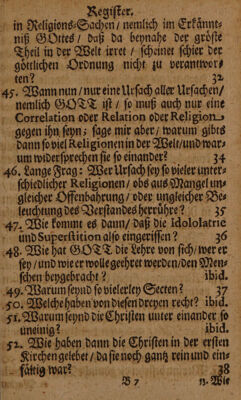 Register.
in Religions-Sachen / nemlich im Erkännt-
niß GOttes / daß da beynahe der gröste
Theil in der Welt irret / scheinet schier der
göttlichen Ordnung nicht zu verantwor-
ten? 32
45. Wann nun / nur eine Ursach aller Ursachen /
nemlich GOTT ist / so muß auch nur eine
Correlation oder Relation oder Religion
gegen ihn seyn: sage mir aber / warum gibts
dann so viel Religionen in der Welt / und war-
um widersprechen sie so einander? 34
46. Lange Frag: Wer Ursach sey so vieler unter-
schiedlicher Religionen / obs aus Mangel un-
gleicher Offenbahrung / oder ungleicher Be-
leuchtung des Verstandes herrühre? 35
47. Wie kommt es dann / daß die Idololatrie
und Superstition also eingerissen? 36
48. Wie hat GOTT die Lehre von sich / wer er
sey / und wie er wolle geehret werden / den Men-
schen beygebracht? ibid.
49. Warum seynd so vielerley Secten? 37
50. Welche haben von diesen dreyen recht? ibid.
51. Warum seynd die Christen unter einander so
uneinig? ibid.
52. Wie haben dann die Christen in der ersten
Kirchen gelebet / da sie noch gantz rein und ein-
fältig war? 38
B 7 53. Wie